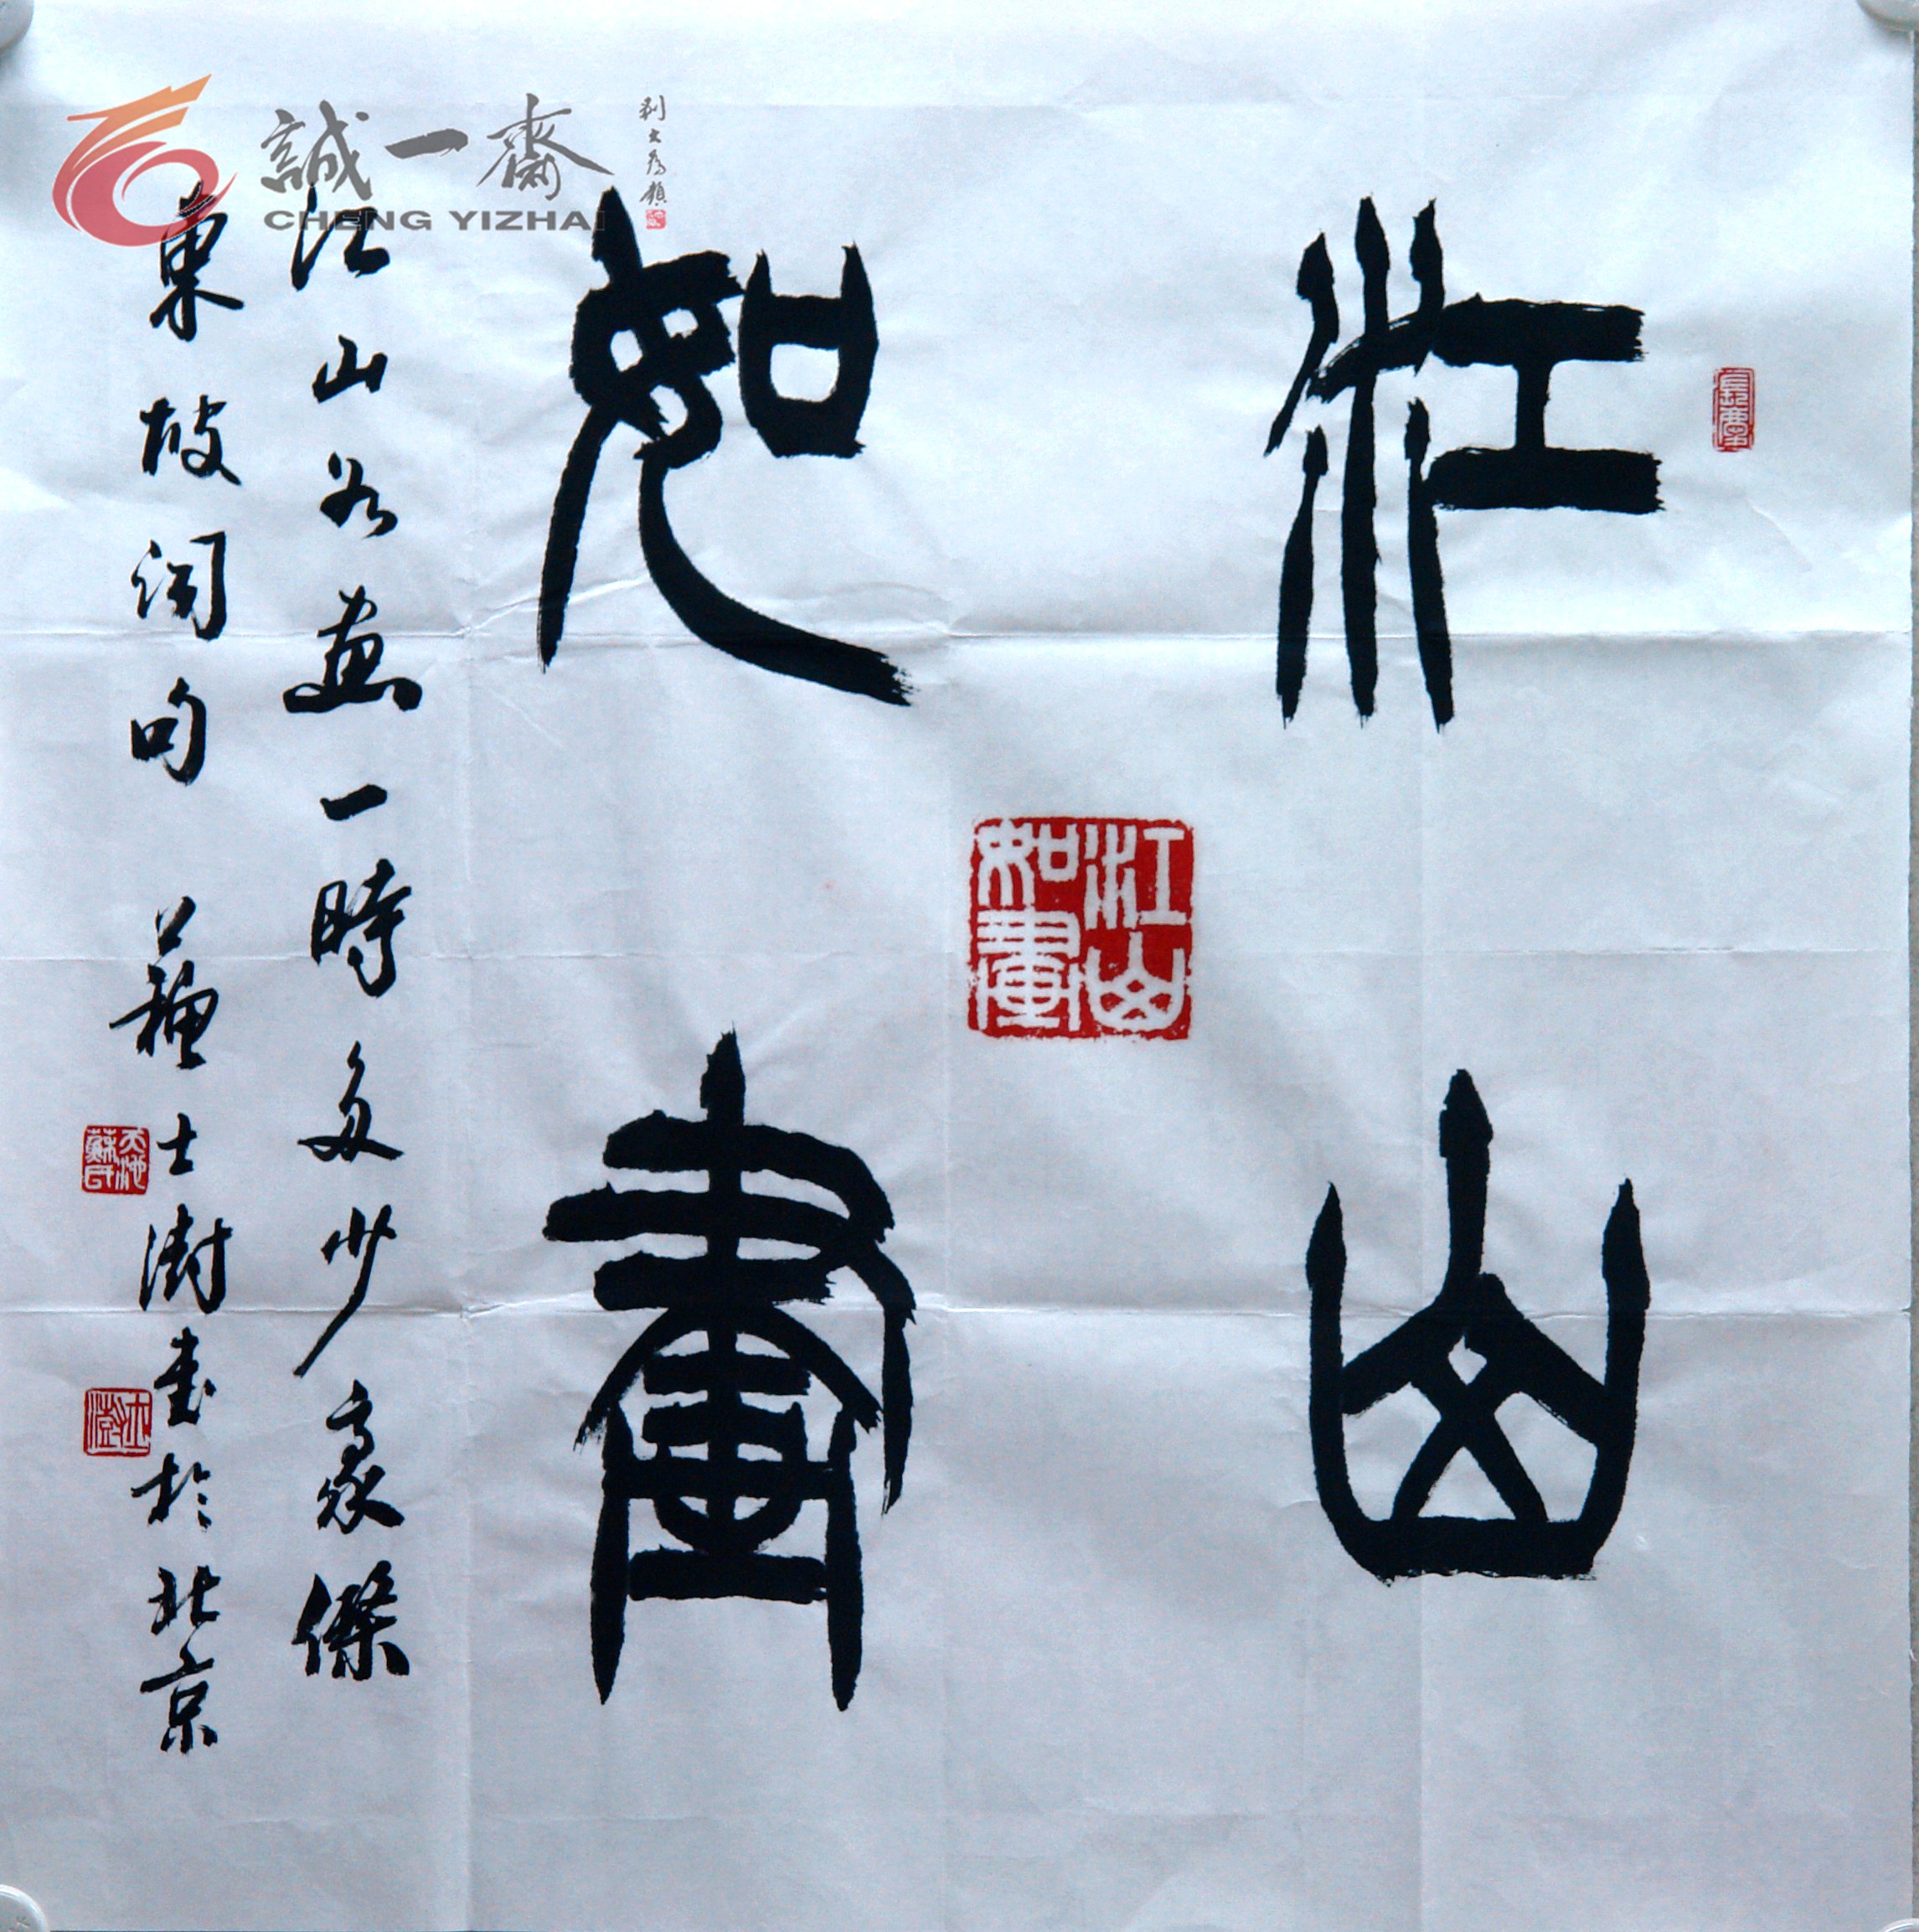 江山
如畫
江山如畫
江山如畫一時多少豪傑
東坡詞句 蘇士澍書於北京
誠一齋
CHENG YIZHAI